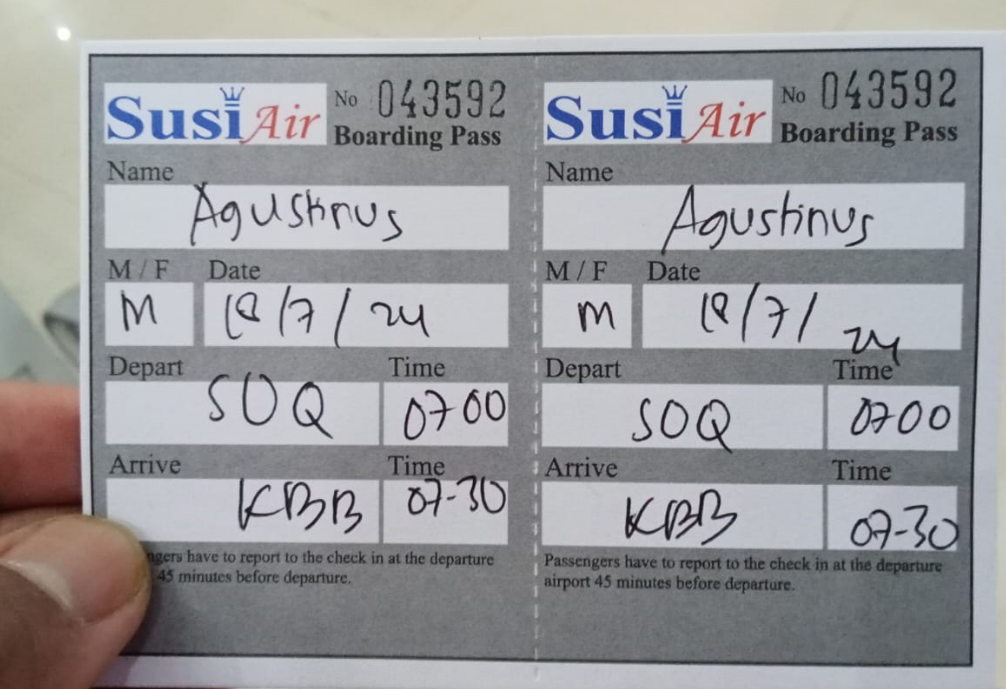 Susi Air No 043592
Boarding Pass
Name
Agustinus
M / F Date
M 18/7/24
Depart Time
SOQ 0700
Arrive Time
KBB 07-30
ngers have to report to the check in at the departure
45 minutes before departure.
Susi Air No 043592
Boarding Pass
Name
Agustinus
M / F Date
M 18/7/24
Depart Time
SOQ 0700
Arrive Time
KBB 07-30
Passengers have to report to the check in at the departure
airport 45 minutes before departure.